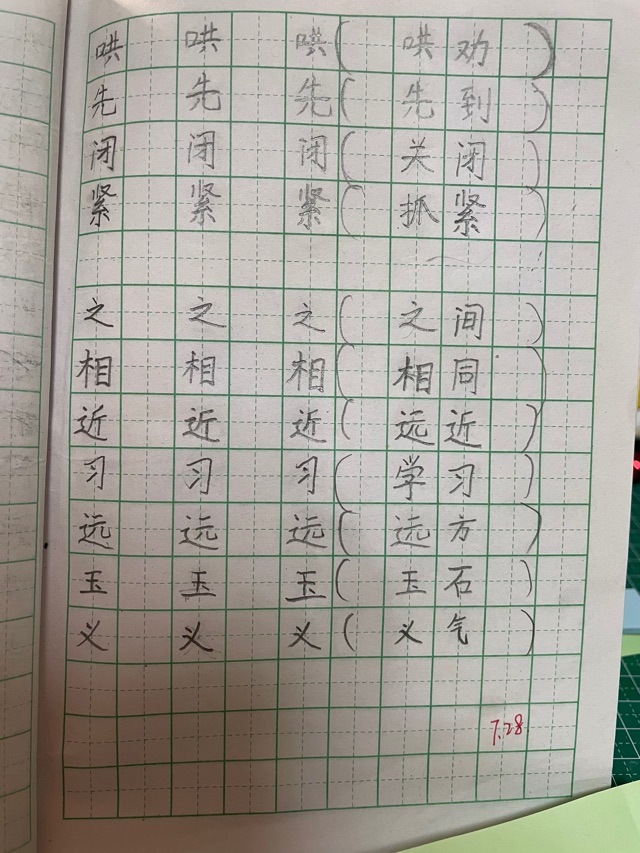 哄 哄 哄( 哄劝 )
先 先 先( 先到 )
闭 闭 闭( 关闭 )
紧 紧 紧( 抓紧 )
之 之 之( 之间 )
相 相 相( 相同 )
近 近 近( 远近 )
习 习 习( 学习 )
远 远 远( 远方 )
玉 玉 玉( 玉石 )
义 义 义( 义气 )
7.28